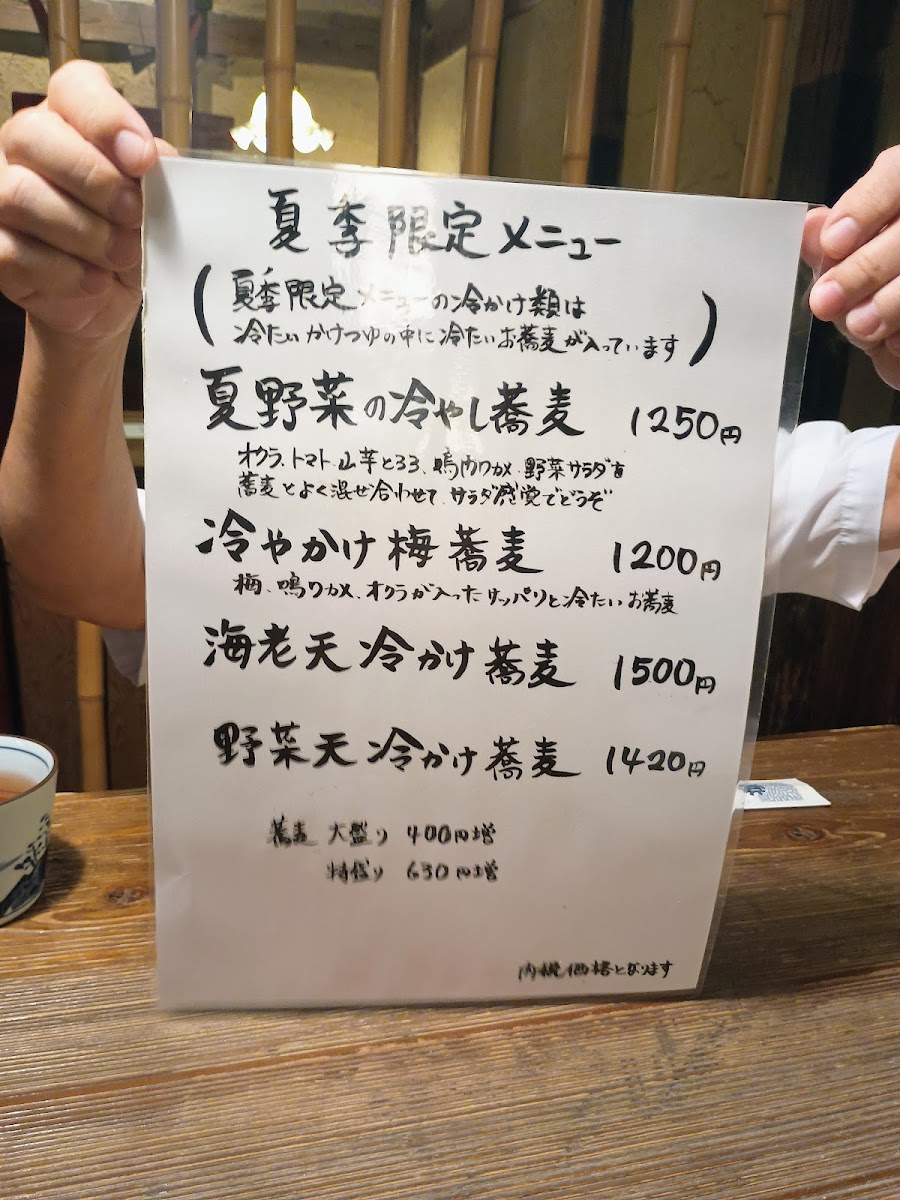 夏季限定メニュー
(夏季限定メニューの冷かけ類は
冷たいかけつゆの中に冷たいお蕎麦が入っています)
夏野菜の冷やし蕎麦 1250円
オクラ、トマト、山芋とろろ、鳴門ワカメ、野菜サラダを
蕎麦とよく混ぜ合わせて、サラダ感覚でどうぞ
冷やかけ梅蕎麦 1200円
梅、鳴門ワカメ、オクラが入ったサッパリと冷たいお蕎麦
海老天冷かけ蕎麦 1500円
野菜天冷かけ蕎麦 1420円
蕎麦 大盛り 400円増
特盛り 630円増
内税価格となります